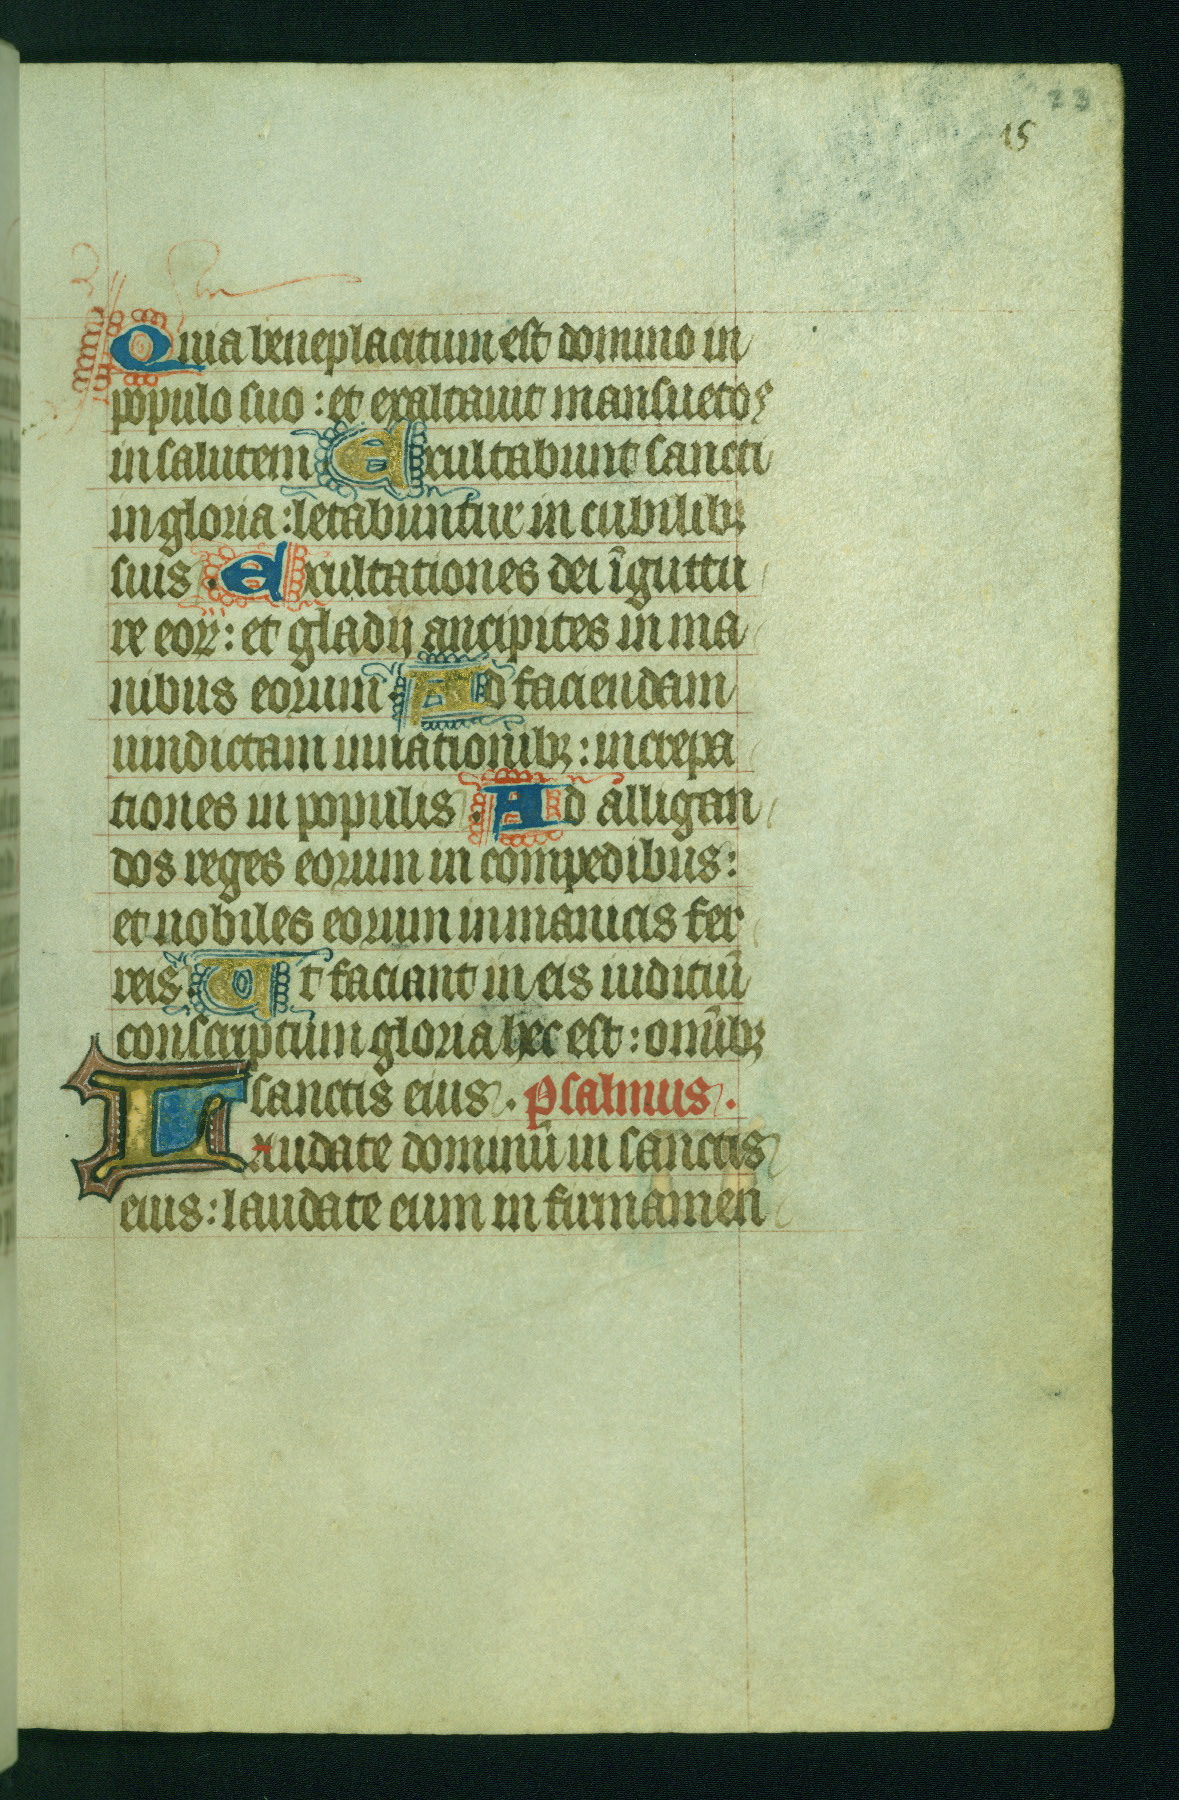 23
15
Quia beneplacitum est domino in
populo suo : et exaltavit mansuetos
in salutem Exultabunt sancti
in gloria : letabuntur in cubilibꝫ
suis . Exultationes dei ī guttu
re eoꝝ : et gladij ancipites in ma
nibus eorum . Ad faciendam
uindictam in natiōnibꝫ : increpa
tiones in populis . Ad alligan
dos reges eorum in compedibus :
et nobiles eorum in manicis fer
reis . Ut faciant in eis iuditiū
conscriptum gloria hec est : omībꝫ
sanctis eius . psalmus .
Laudate dominū in sanctis
eius : laudate eum in firmamen